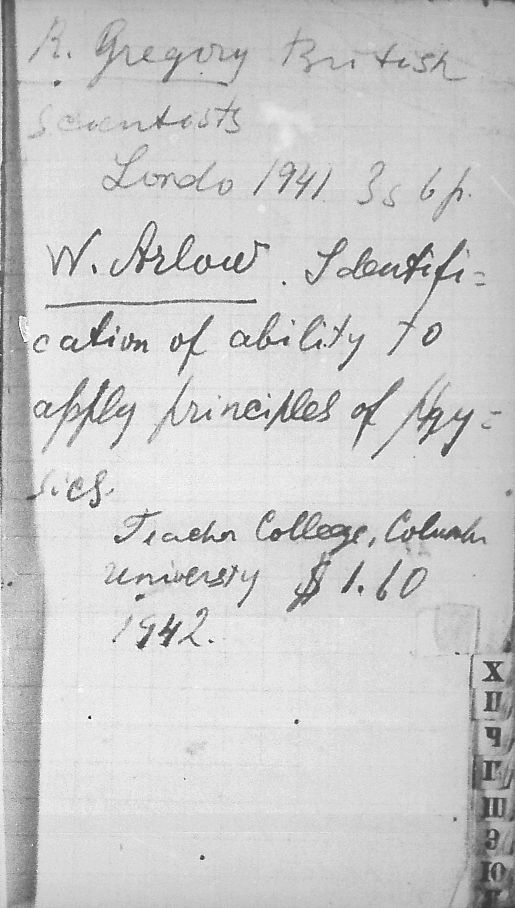 R. Gregory British
Scientists
Londo 1941 3s 6p.
W. Arlow. Identifi=
cation of ability to
apply principles of phy=
sics.
Teacher College, Columb
University $ 1.60
1942.
Х
Ц
Ч
Ш
Э
Ю